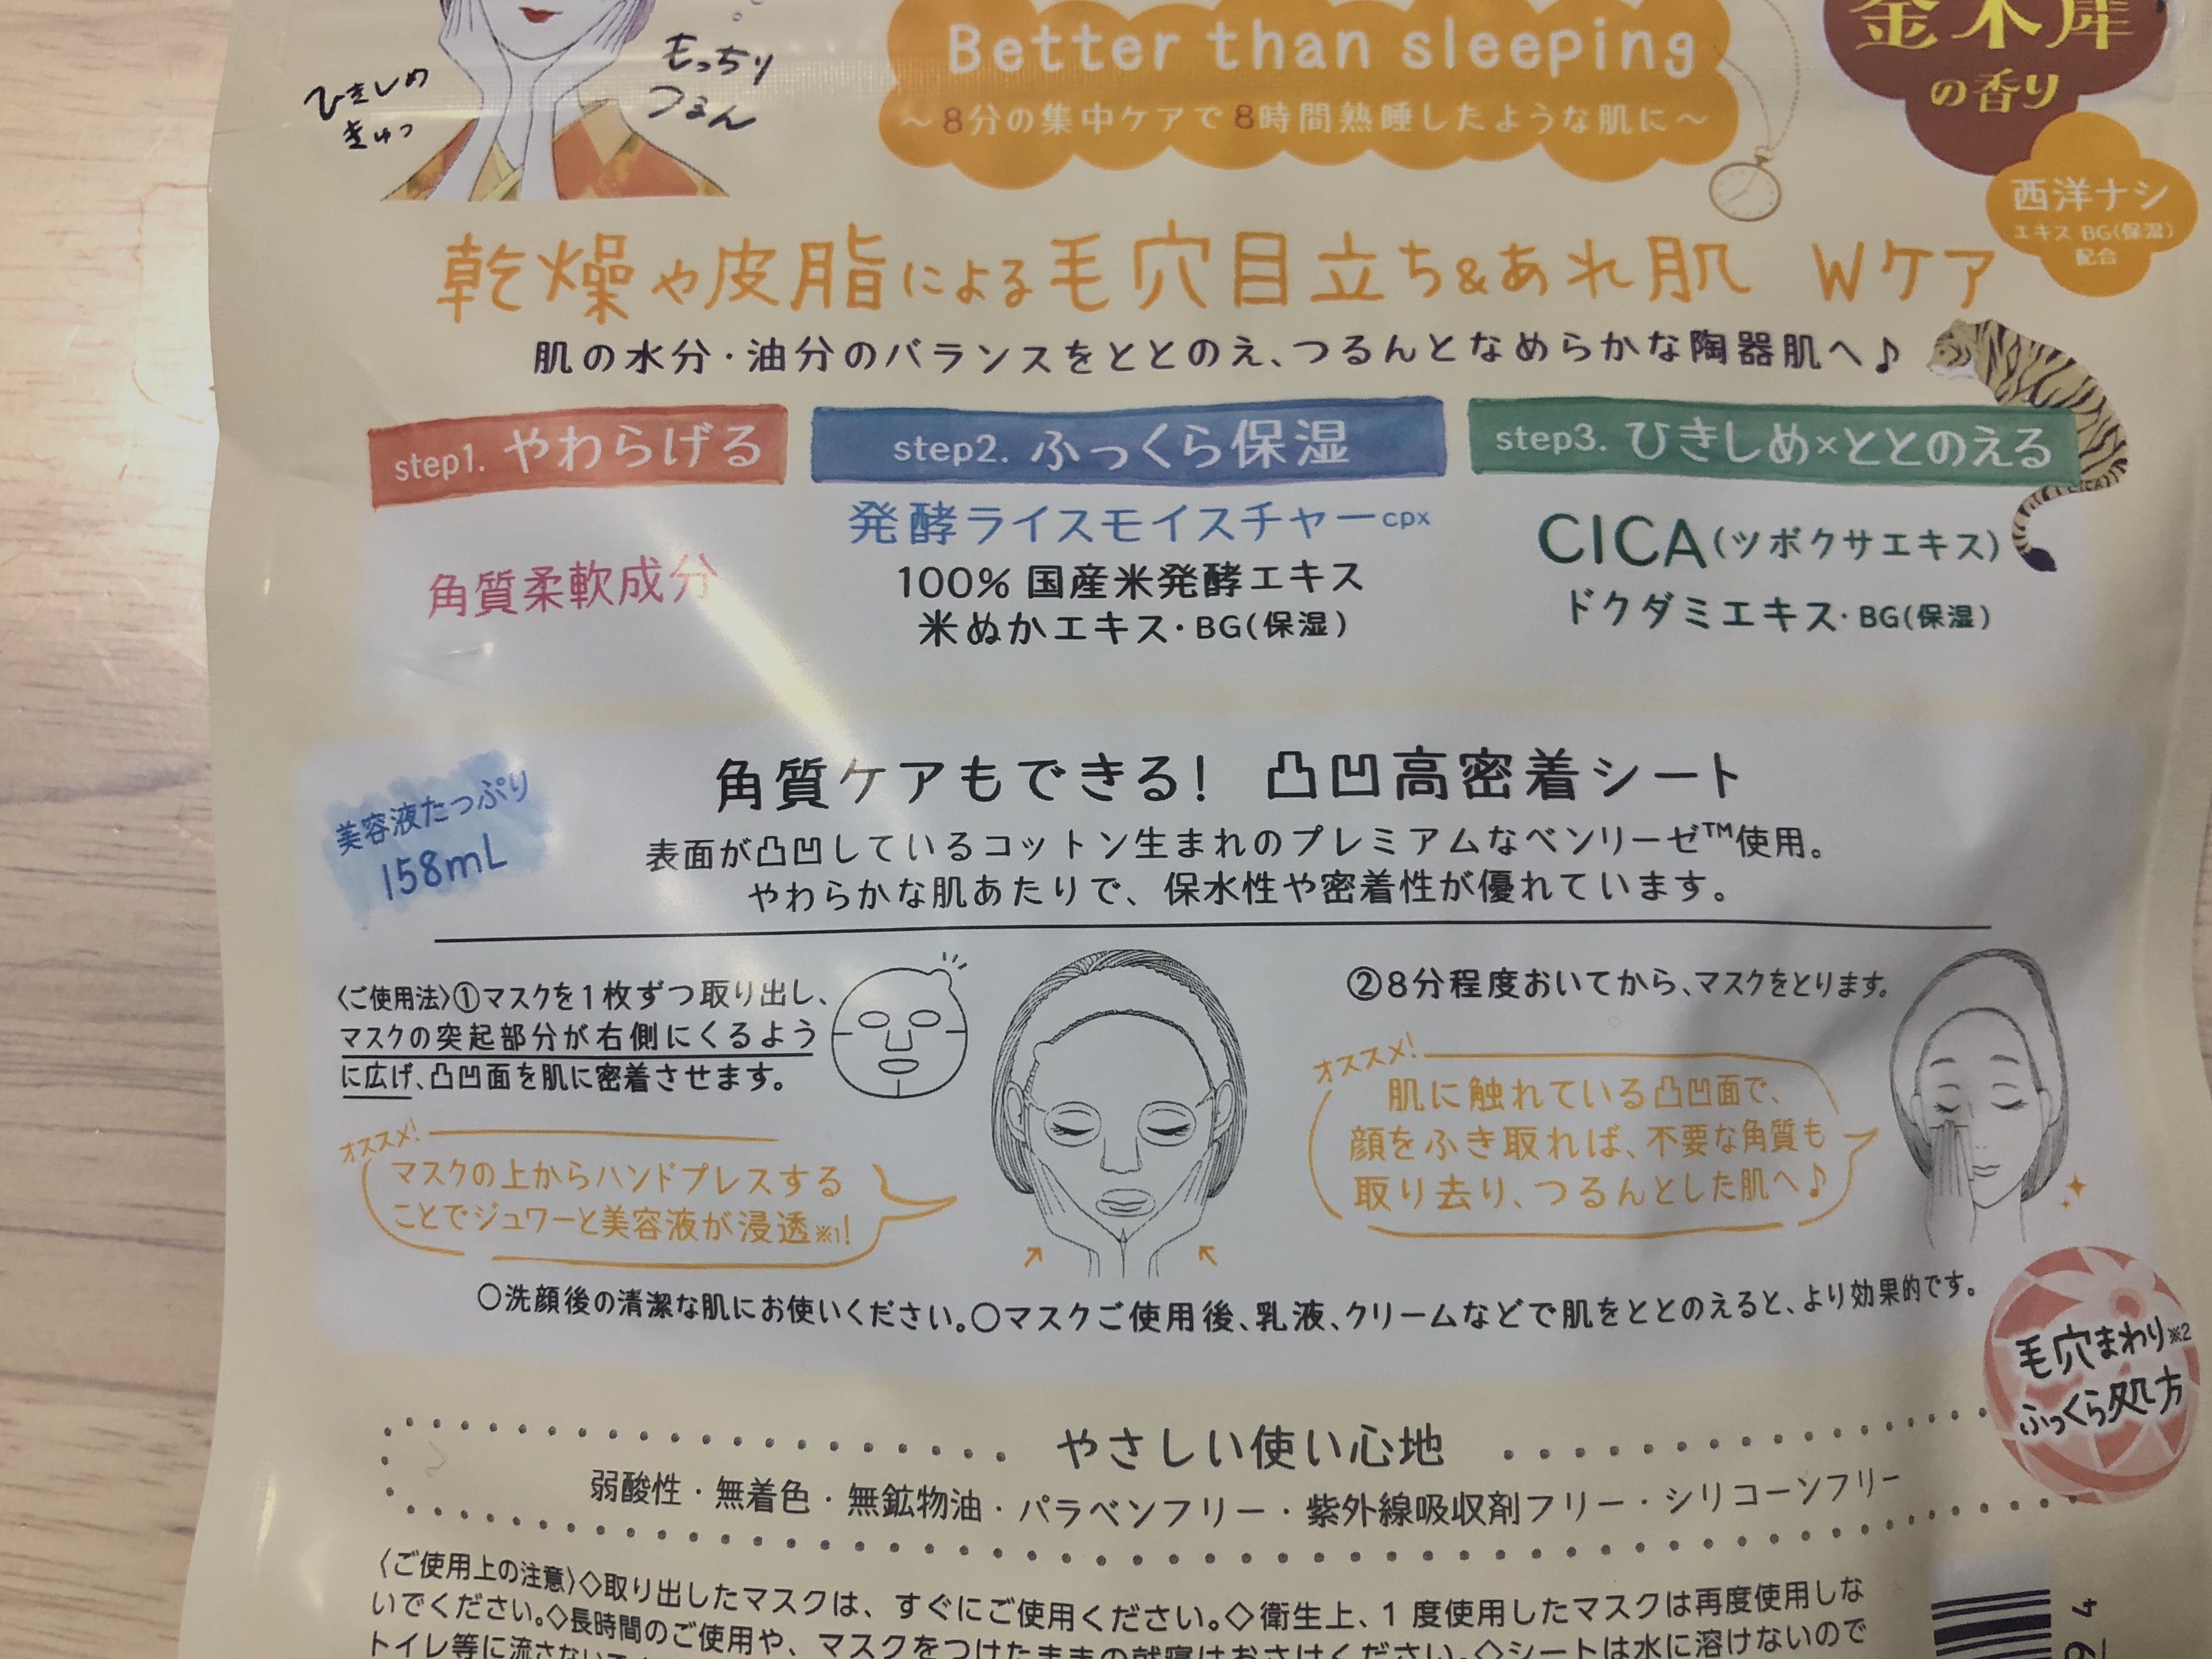 ひきしめ
きゅっ
もっちり
つるん
Better than sleeping
～8分の集中ケアで8時間熟睡したような肌に～
金木犀
の香り
西洋ナシ
エキス BG(保湿)
配合
乾燥や皮脂による毛穴目立ち&あれ肌 Wケア
肌の水分・油分のバランスをととのえ、つるんとなめらかな陶器肌へ♪
step1. やわらげる
角質柔軟成分
step2. ふっくら保湿
発酵ライスモイスチャーcpx
100% 国産米発酵エキス
米ぬかエキス・BG(保湿)
step3. ひきしめ×ととのえる
CICA(ツボクサエキス)
ドクダミエキス・BG(保湿)
美容液たっぷり
158mL
角質ケアもできる! 凸凹高密着シート
表面が凸凹しているコットン生まれのプレミアムなベンリーゼ™使用。
やわらかな肌あたりで、保水性や密着性が優れています。
〈ご使用法〉①マスクを1枚ずつ取り出し、
マスクの突起部分が右側にくるよう
に広げ、凸凹面を肌に密着させます。
オススメ!
マスクの上からハンドプレスする
ことでジュワーと美容液が浸透※1!
②8分程度おいてから、マスクをとります。
オススメ!
肌に触れている凸凹面で、
顔をふき取れば、不要な角質も
取り去り、つるんとした肌へ♪
○洗顔後の清潔な肌にお使いください。○マスクご使用後、乳液、クリームなどで肌をととのえると、より効果的です。
毛穴まわり※2
ふっくら処方
やさしい使い心地
弱酸性・無着色・無鉱物油・パラベンフリー・紫外線吸収剤フリー・シリコーンフリー
〈ご使用上の注意〉◇取り出したマスクは、すぐにご使用ください。◇衛生上、1度使用したマスクは再度使用しな
いでください。◇長時間のご使用や、マスクをつけたままの就寝はおさけください。◇シートは水に溶けないので
トイレ等に流さない